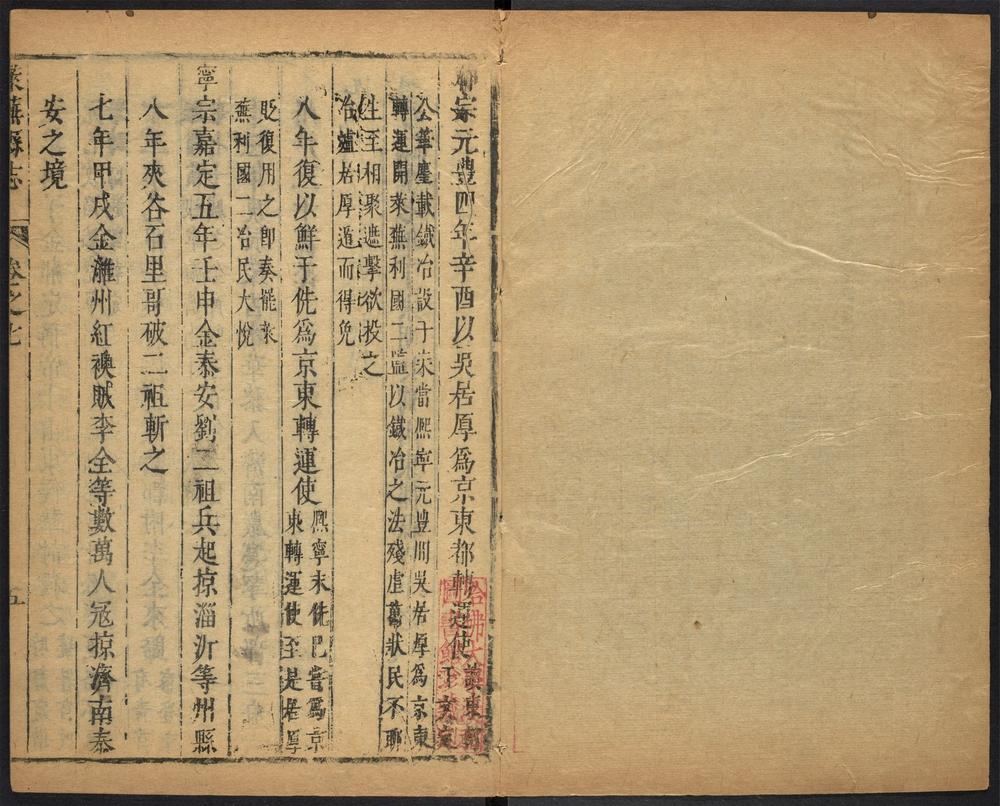 神宗元豐四年辛酉以吳居厚爲京東都轉運使讀東都
下文定
公華麈載鐵冶設于宋當熈寧元豐間吳居厚爲京東
轉運開萊蕪利國二監以鐵冶之法殘虐萬狀民不聊
生至相聚遮擊欲投之
冶爐居厚遁而得免
八年復以鮮于侁爲京東轉運使
熈寧末侁已嘗爲京
東轉運使至是居厚
貶復用之卽奏罷萊
蕪利國二冶民大悅
寧宗嘉定五年壬申金泰安劉二祖兵起掠淄沂等州縣
八年夾谷石里哥破二祖斬之
七年甲戌金濰州紅襖賊李全等數萬人冦掠濟南泰
安之境
萊蕪縣志
卷之七
五
哈佛大
圖書館珍藏印